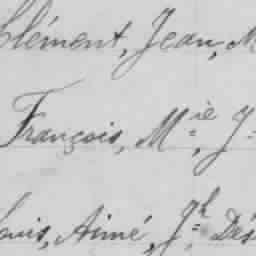 Clément, Jean, M
François, M=ie, J=
Louis, Aimé, J=h, Dés